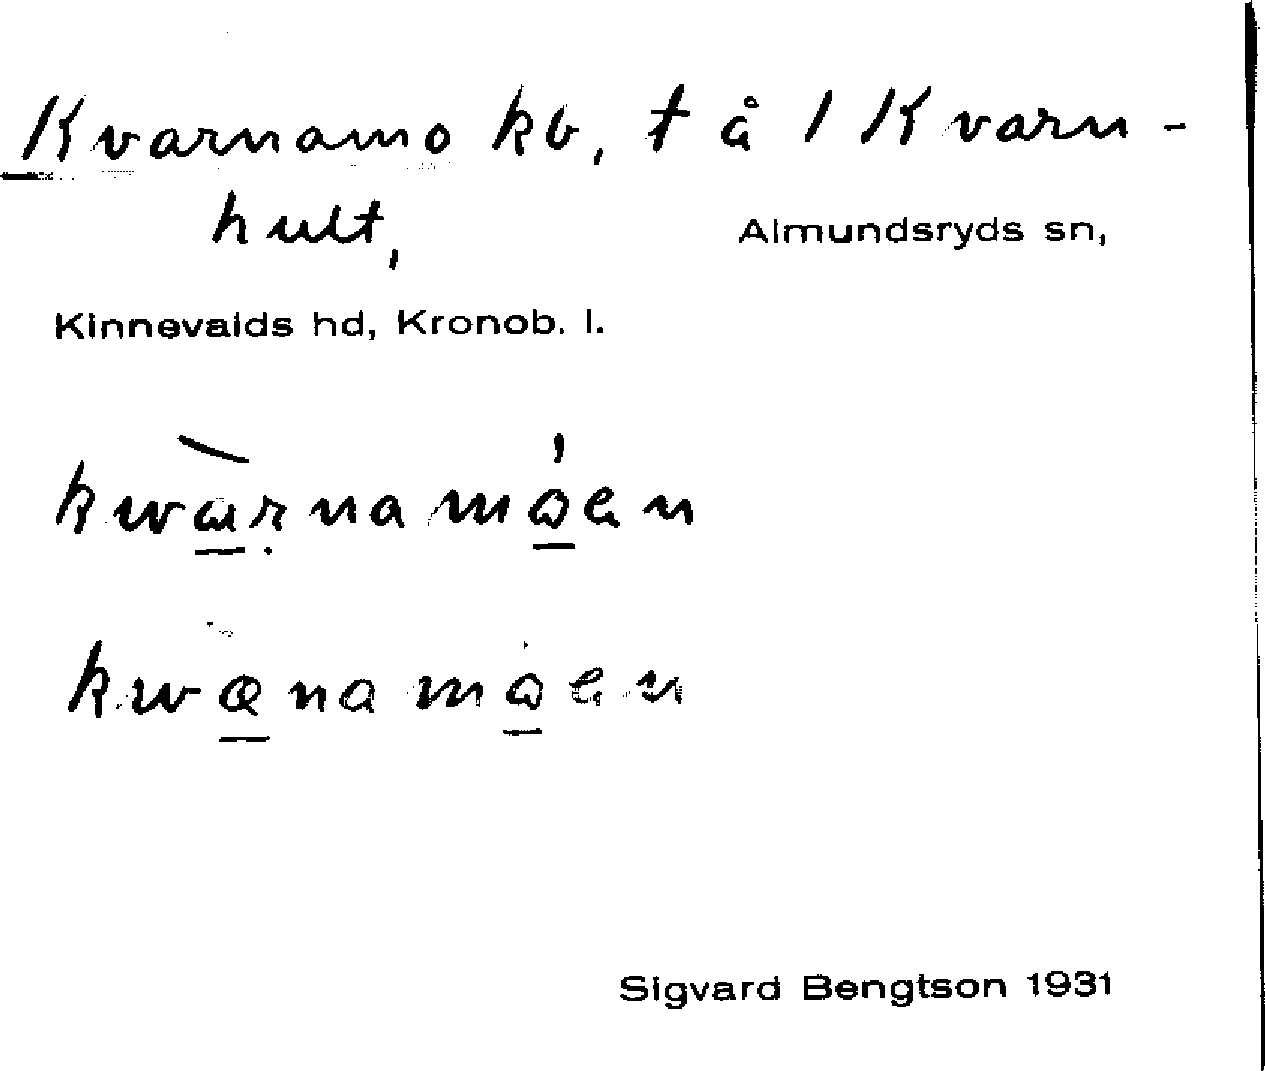 Kvarnamo kb, t å 1 Kvarn-
hult, Almundsryds sn,
Kinnevalds hd, Kronob. l.
kwarnamoen
kwanamoen
Sigvard Bengtson 1931